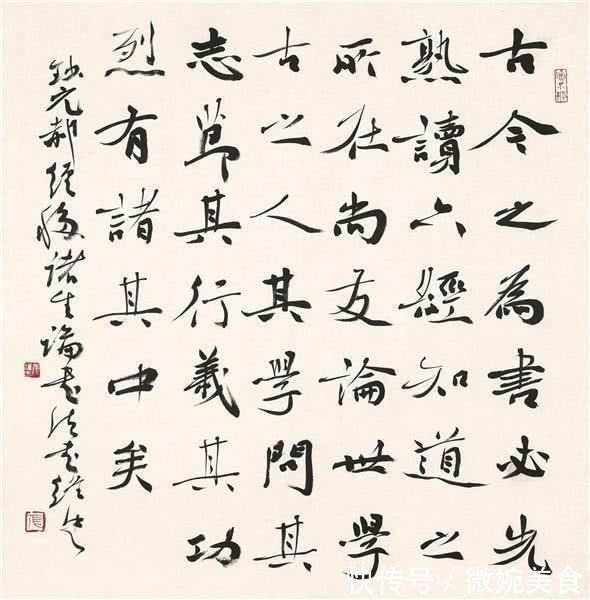 古今之為書必先
熟讀六經知道之
所在尚友論世學
古之人其學問其
志節其行義其功
烈有諸其中矣
元郝經移諸生論書法
快传号 / 微婉美食